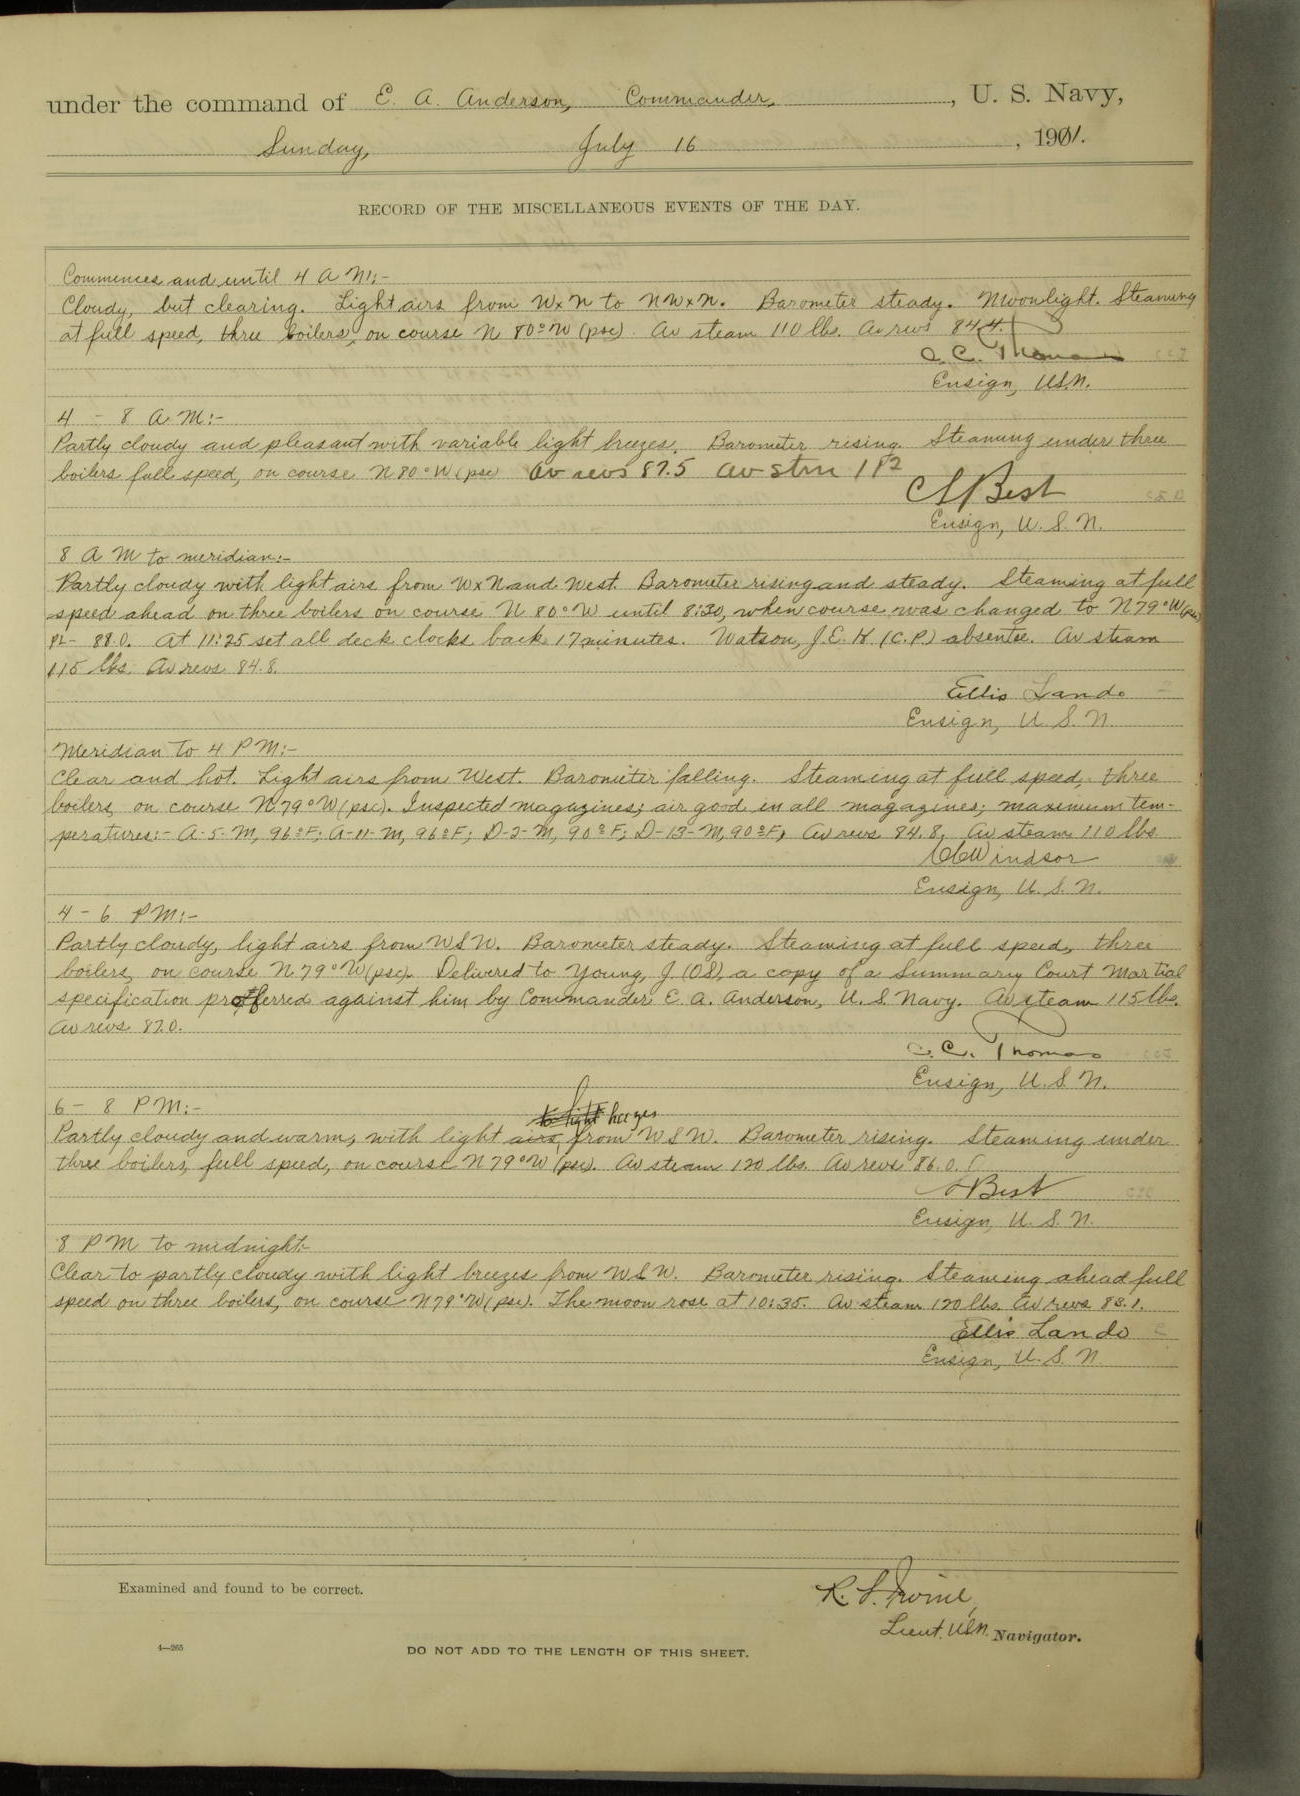 under the command of E. A. Anderson, Commander, , U. S. Navy,
Sunday, July 16 , 1901.
RECORD OF THE MISCELLANEOUS EVENTS OF THE DAY.
Commences and until 4 A M:-
Cloudy, but clearing. Light airs from WxN to NWxN. Barometer steady. Moonlight. Steaming
at full speed, three boilers, on course N 80° W (psc). Av steam 110 lbs. Av revs 84.4.
C. C. Thomas
Ensign, U.S.N.
4 - 8 A M:-
Partly cloudy and pleasant with variable light breezes. Barometer rising. Steaming under three
boilers full speed, on course N 80° W (psc) Av revs 87.5 Av stm 112
Best
Ensign, U. S. N.
8 A M to meridian:-
Partly cloudy with light airs from WxN and West. Barometer rising and steady. Steaming at full
speed ahead on three boilers on course N 80° W until 8:30, when course was changed to N 79° W (psc)
PL- 88.0. At 11:25 set all deck clocks back 17 minutes. Watson, J.E.H. (C.P.) absentee. Av steam
115 lbs. Av revs 84.8.
Ellis Lando
Ensign, U. S. N.
Meridian to 4 P M:-
Clear and hot. Light airs from West. Barometer falling. Steaming at full speed, three
boilers, on course N 79° W (psc). Inspected magazines; air good in all magazines; maximum tem-
peratures:- A-5-M, 96°F; A-11-M, 96°F; D-2-M, 90°F; D-13-M, 90°F; Av revs 84.8, Av steam 110 lbs
Windsor
Ensign, U. S. N.
4 - 6 P M:-
Partly cloudy, light airs from WSW. Barometer steady. Steaming at full speed, three
boilers, on course N 79° W (psc). Delivered to Young, J. (OS), a copy of a Summary Court Martial
specification profferred against him by Commander E. A. Anderson, U. S. Navy. Av steam 115 lbs.
Av revs 87.0.
C. C. Thomas
Ensign, U. S. N.
6 - 8 P M:-
to light breezes
Partly cloudy and warm, with light airs from WSW. Barometer rising. Steaming under
three boilers, full speed, on course N 79° W (psc). Av steam 120 lbs. Av revs 86.0.
Best
Ensign, U. S. N.
8 P M to midnight:-
Clear to partly cloudy with light breezes from WSW. Barometer rising. Steaming ahead full
speed on three boilers, on course N 79° W (psc). The moon rose at 10:35. Av steam 120 lbs. Av revs 83.1.
Ellis Lando
Ensign, U. S. N.
Examined and found to be correct.
R. L. Irvine,
Lieut. U.S.N. Navigator.
4—265
DO NOT ADD TO THE LENGTH OF THIS SHEET.